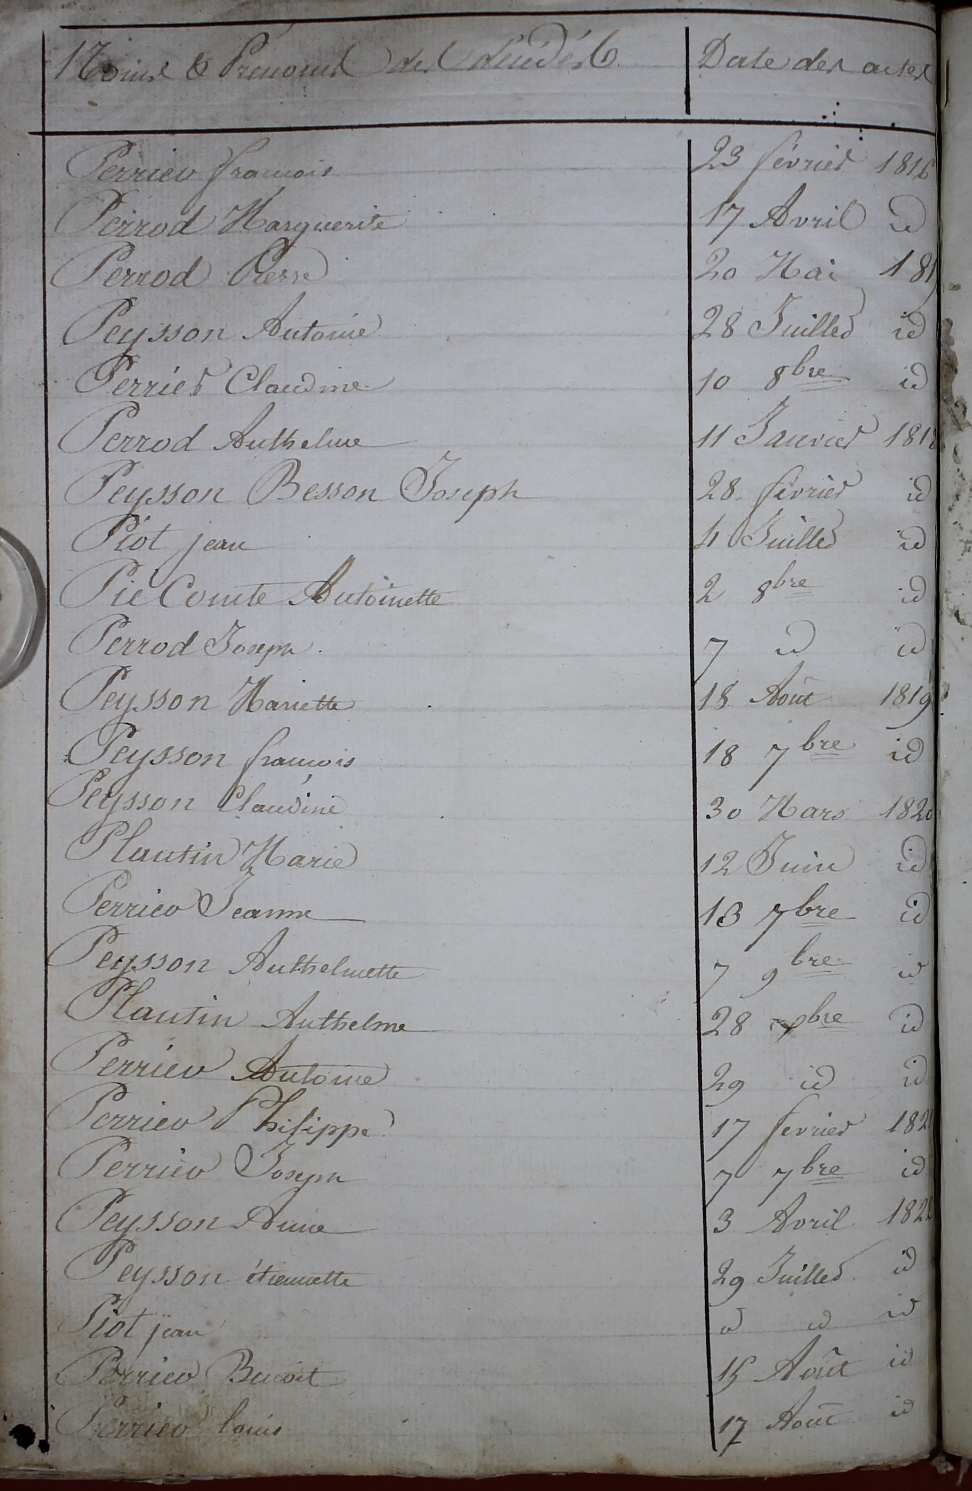 Noms & Prénoms des décédés Date des actes
Perrier françois 23 février 1816
Perrod Marguerite 17 Avril id
Perrod Pierre 20 Mai 181
Peysson Antoine 28 Juillet id
Perrier Claudine 10 8bre id
Perrod Anthelme 11 Janvier 1818
Peysson Besson Joseph 28 février id
Piot jean 11 Juillet id
Pie Comte Antoinette 2 8bre id
Perrod Joseph 7 id id
Peysson Mariette 18 Août 1819
Peysson françois 18 7bre id
Peysson Claudine 30 Mars 1820
Plantin Marie 12 Juin id
Perrier Jeanne 13 7bre id
Peysson Anthelmette 7 9bre id
Plantin Anthelme 28 xbre id
Perrier Antoine 29 id id
Perrier Philippe 17 février 182
Perrier Joseph 7 7bre id
Peysson Anne 3 Avril 182
Peysson étiennette 29 Juillet id
Piot jean id id id
Perrier Benoit 15 Août id
Perrier louis 17 Août id